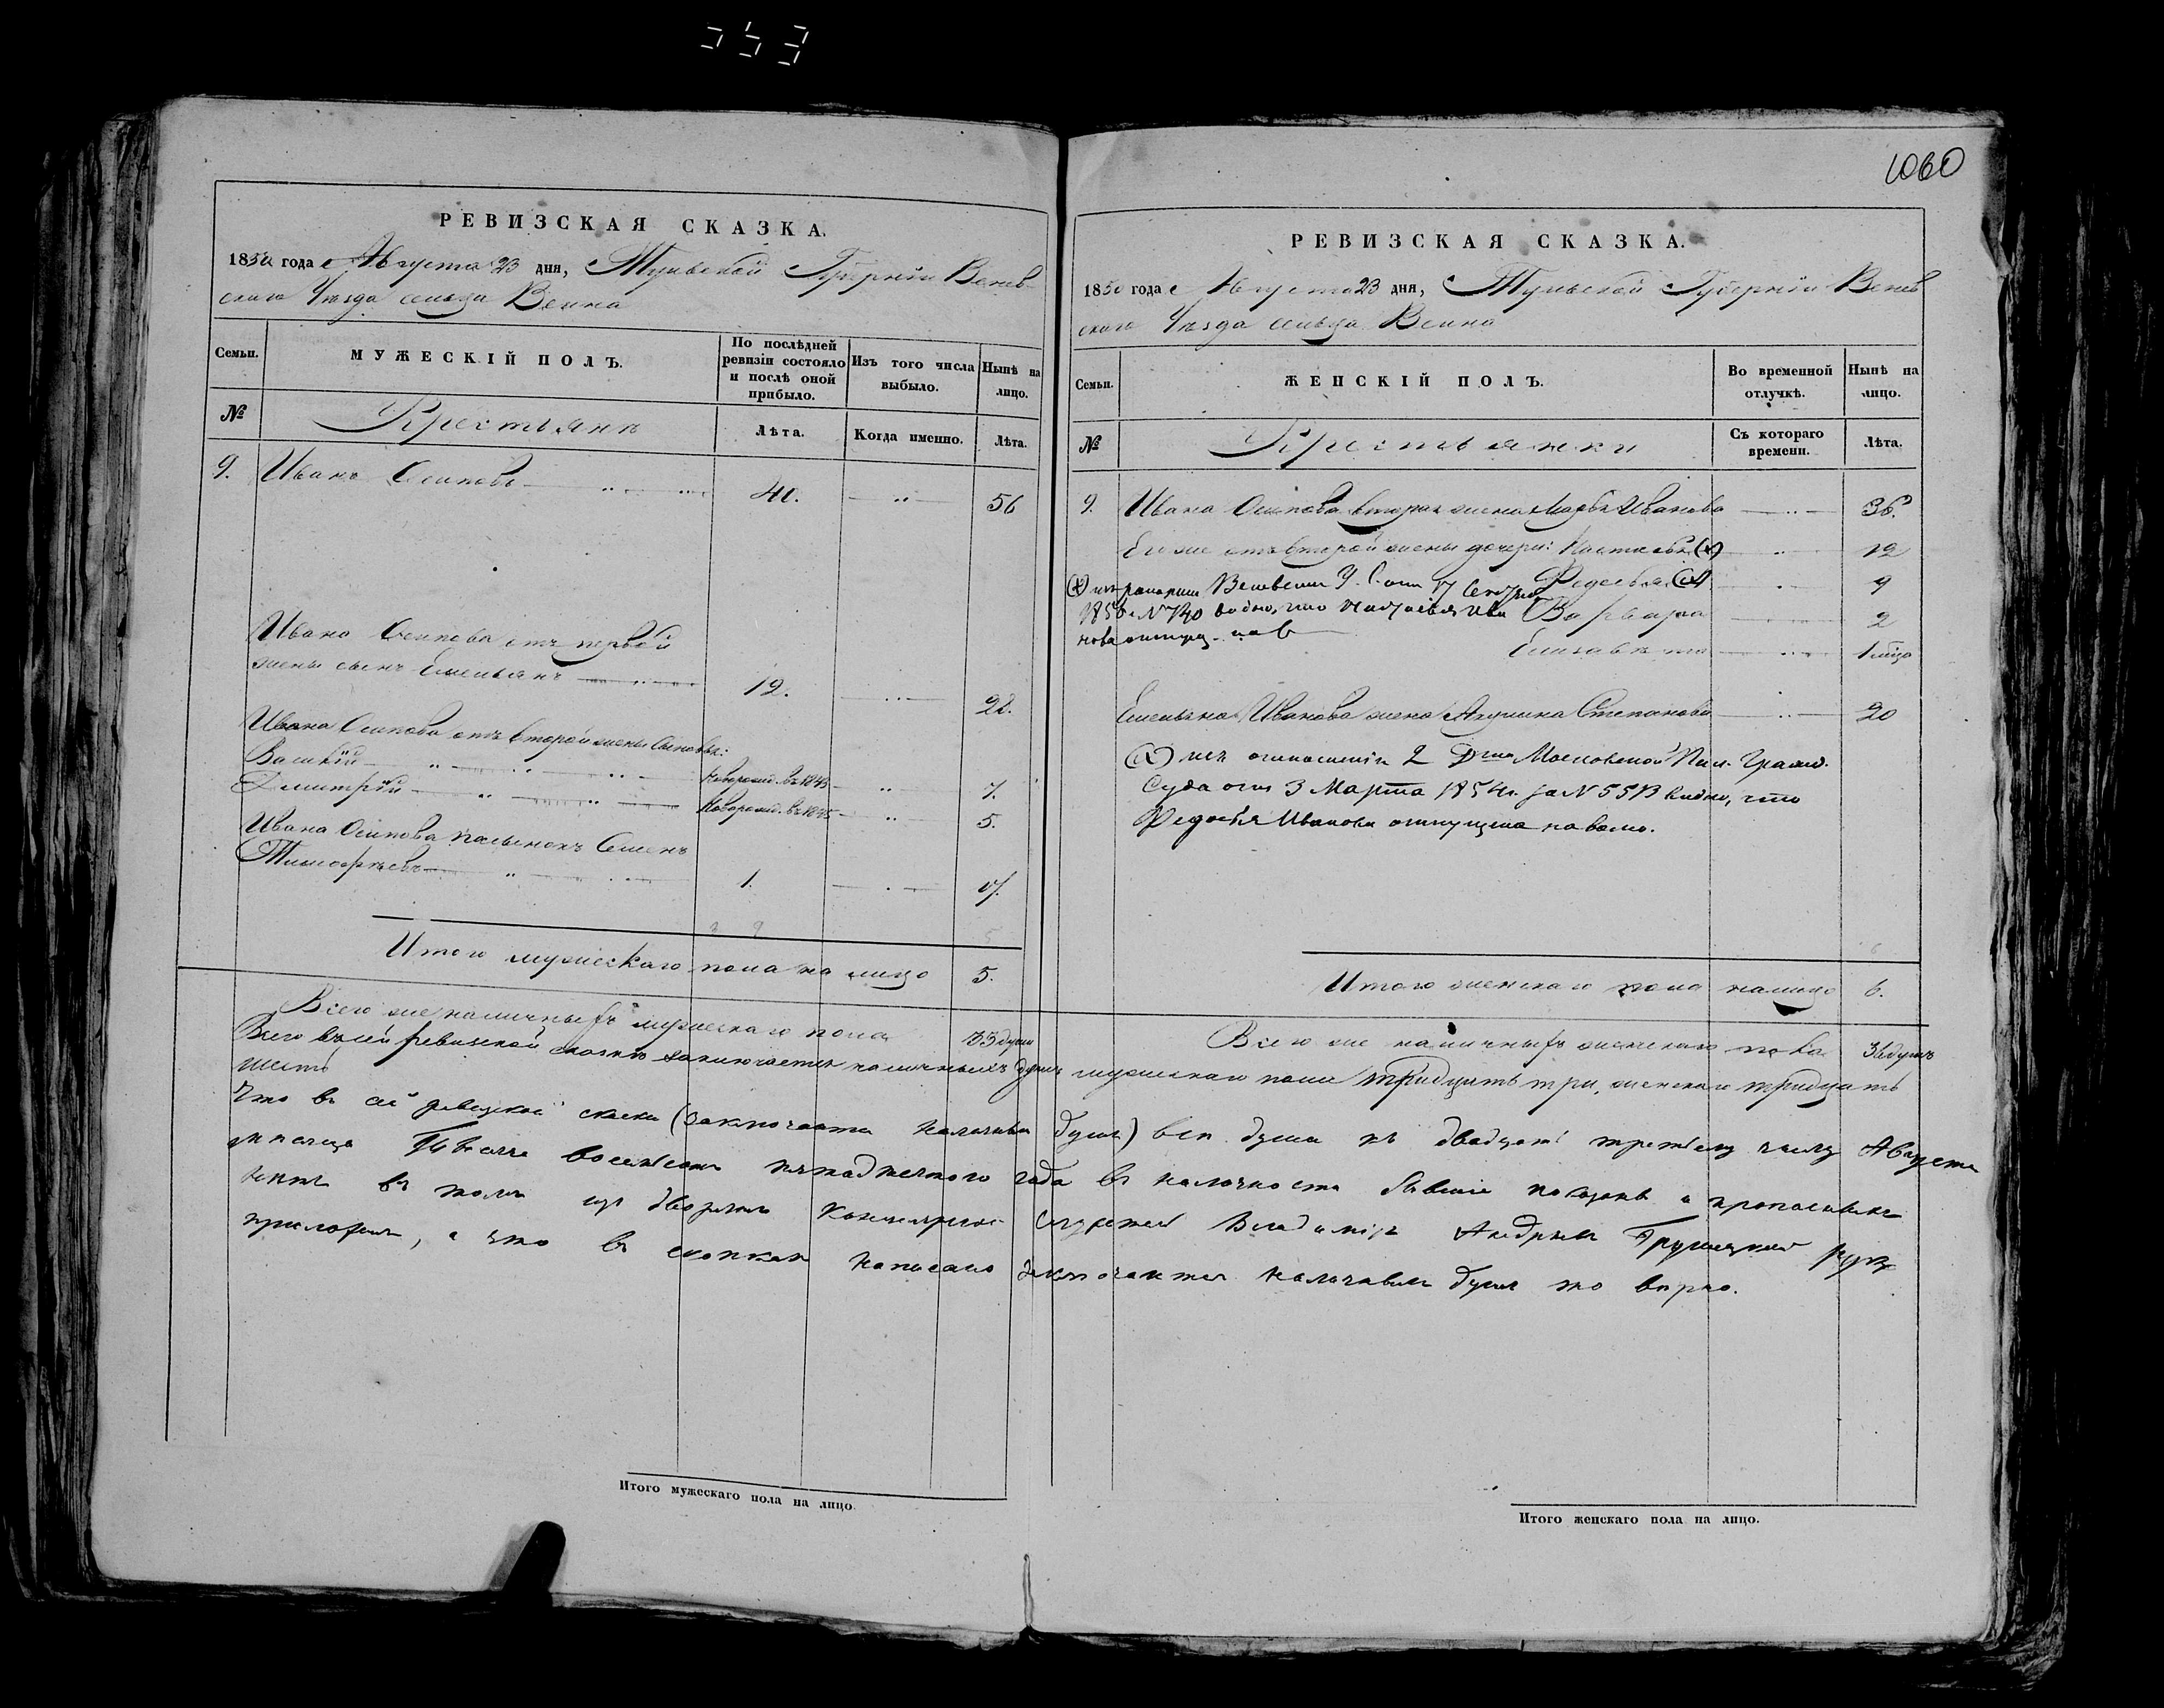 1060
РЕВИЗСКАЯ СКАЗКА.
1850 года Августа 23 дня, Тульской Губерніи Венев-
скаго Уѣзда сельца
Семьи.
МУЖЕСКІЙ ПОЛЪ.
По послѣдней ревизіи состояло и послѣ оной прибыло.
Изъ того числа выбыло.
Нынѣ на лицо.
№
Крестьянъ
Лѣта.
Когда именно.
Лѣта.
9. Иванъ Осиповъ 40. 56
Ивана Осипова отъ первой
жены сынъ Емельянъ 12. 28.
Ивана Осипова отъ второй жены сыновья:
Василій Новорожд. въ 1843 7.
Дмитрій Новорожд. въ 1845 5.
Ивана Осипова пасынокъ Семенъ
Тимофѣевъ 1. 17.
Итого мужескаго пола на лицо 5.
Всего же наличныхъ мужескаго пола 33 души
РЕВИЗСКАЯ СКАЗКА.
1850 года Августа 23 дня, Тульской Губерніи Венев
скаго Уѣзда сельца
Семьи.
ЖЕНСКІЙ ПОЛЪ.
Во временной отлучкѣ.
Нынѣ на лицо.
№
Крестьянки
Съ котораго времени.
Лѣта.
9. Ивана Осипова вторая жена Марья Иванова 36.
Его же отъ второй жены дочери: Настасья (х) 12
Федосья (х) 9
Варвара 2
Елизавета 1 мѣсяца
(х) изъ рапорта Веневскаго У. С. отъ 17
185 № 740 видно, что Настасья Ива
нова отпущ. на в
Емельяна Иванова жена Акулина Степанова 20
(х) изъ отношенія 2 Д Московской Пал. Гражд.
Суда отъ 3 Марта 1854 г. за № 5513 видно, что
Федосья Иванова отпущена на волю.
Итого женскаго пола на лицо 6.
Всего же наличныхъ женскаго пола 36 душъ
Всего въ сей ревизской сказкѣ заключается наличныхъ душъ мужескаго пола тридцать три, женскаго тридцать
шесть
Что въ сей ревизской сказки (заключается наличныхъ душъ) всѣ души къ двадцать третьему числу Августа
мѣсяца Тысяча восемьсотъ пятидесятого года въ наличности бывшіе показаны и прописныхъ
нѣтъ въ томъ изъ дворянъ Секретарь Владиміръ Андреевъ руку
приложилъ, а что въ скопкахъ написано заключается наличныхъ душъ то вѣрно.
Итого мужескаго пола на лицо.
Итого женскаго пола на лицо.